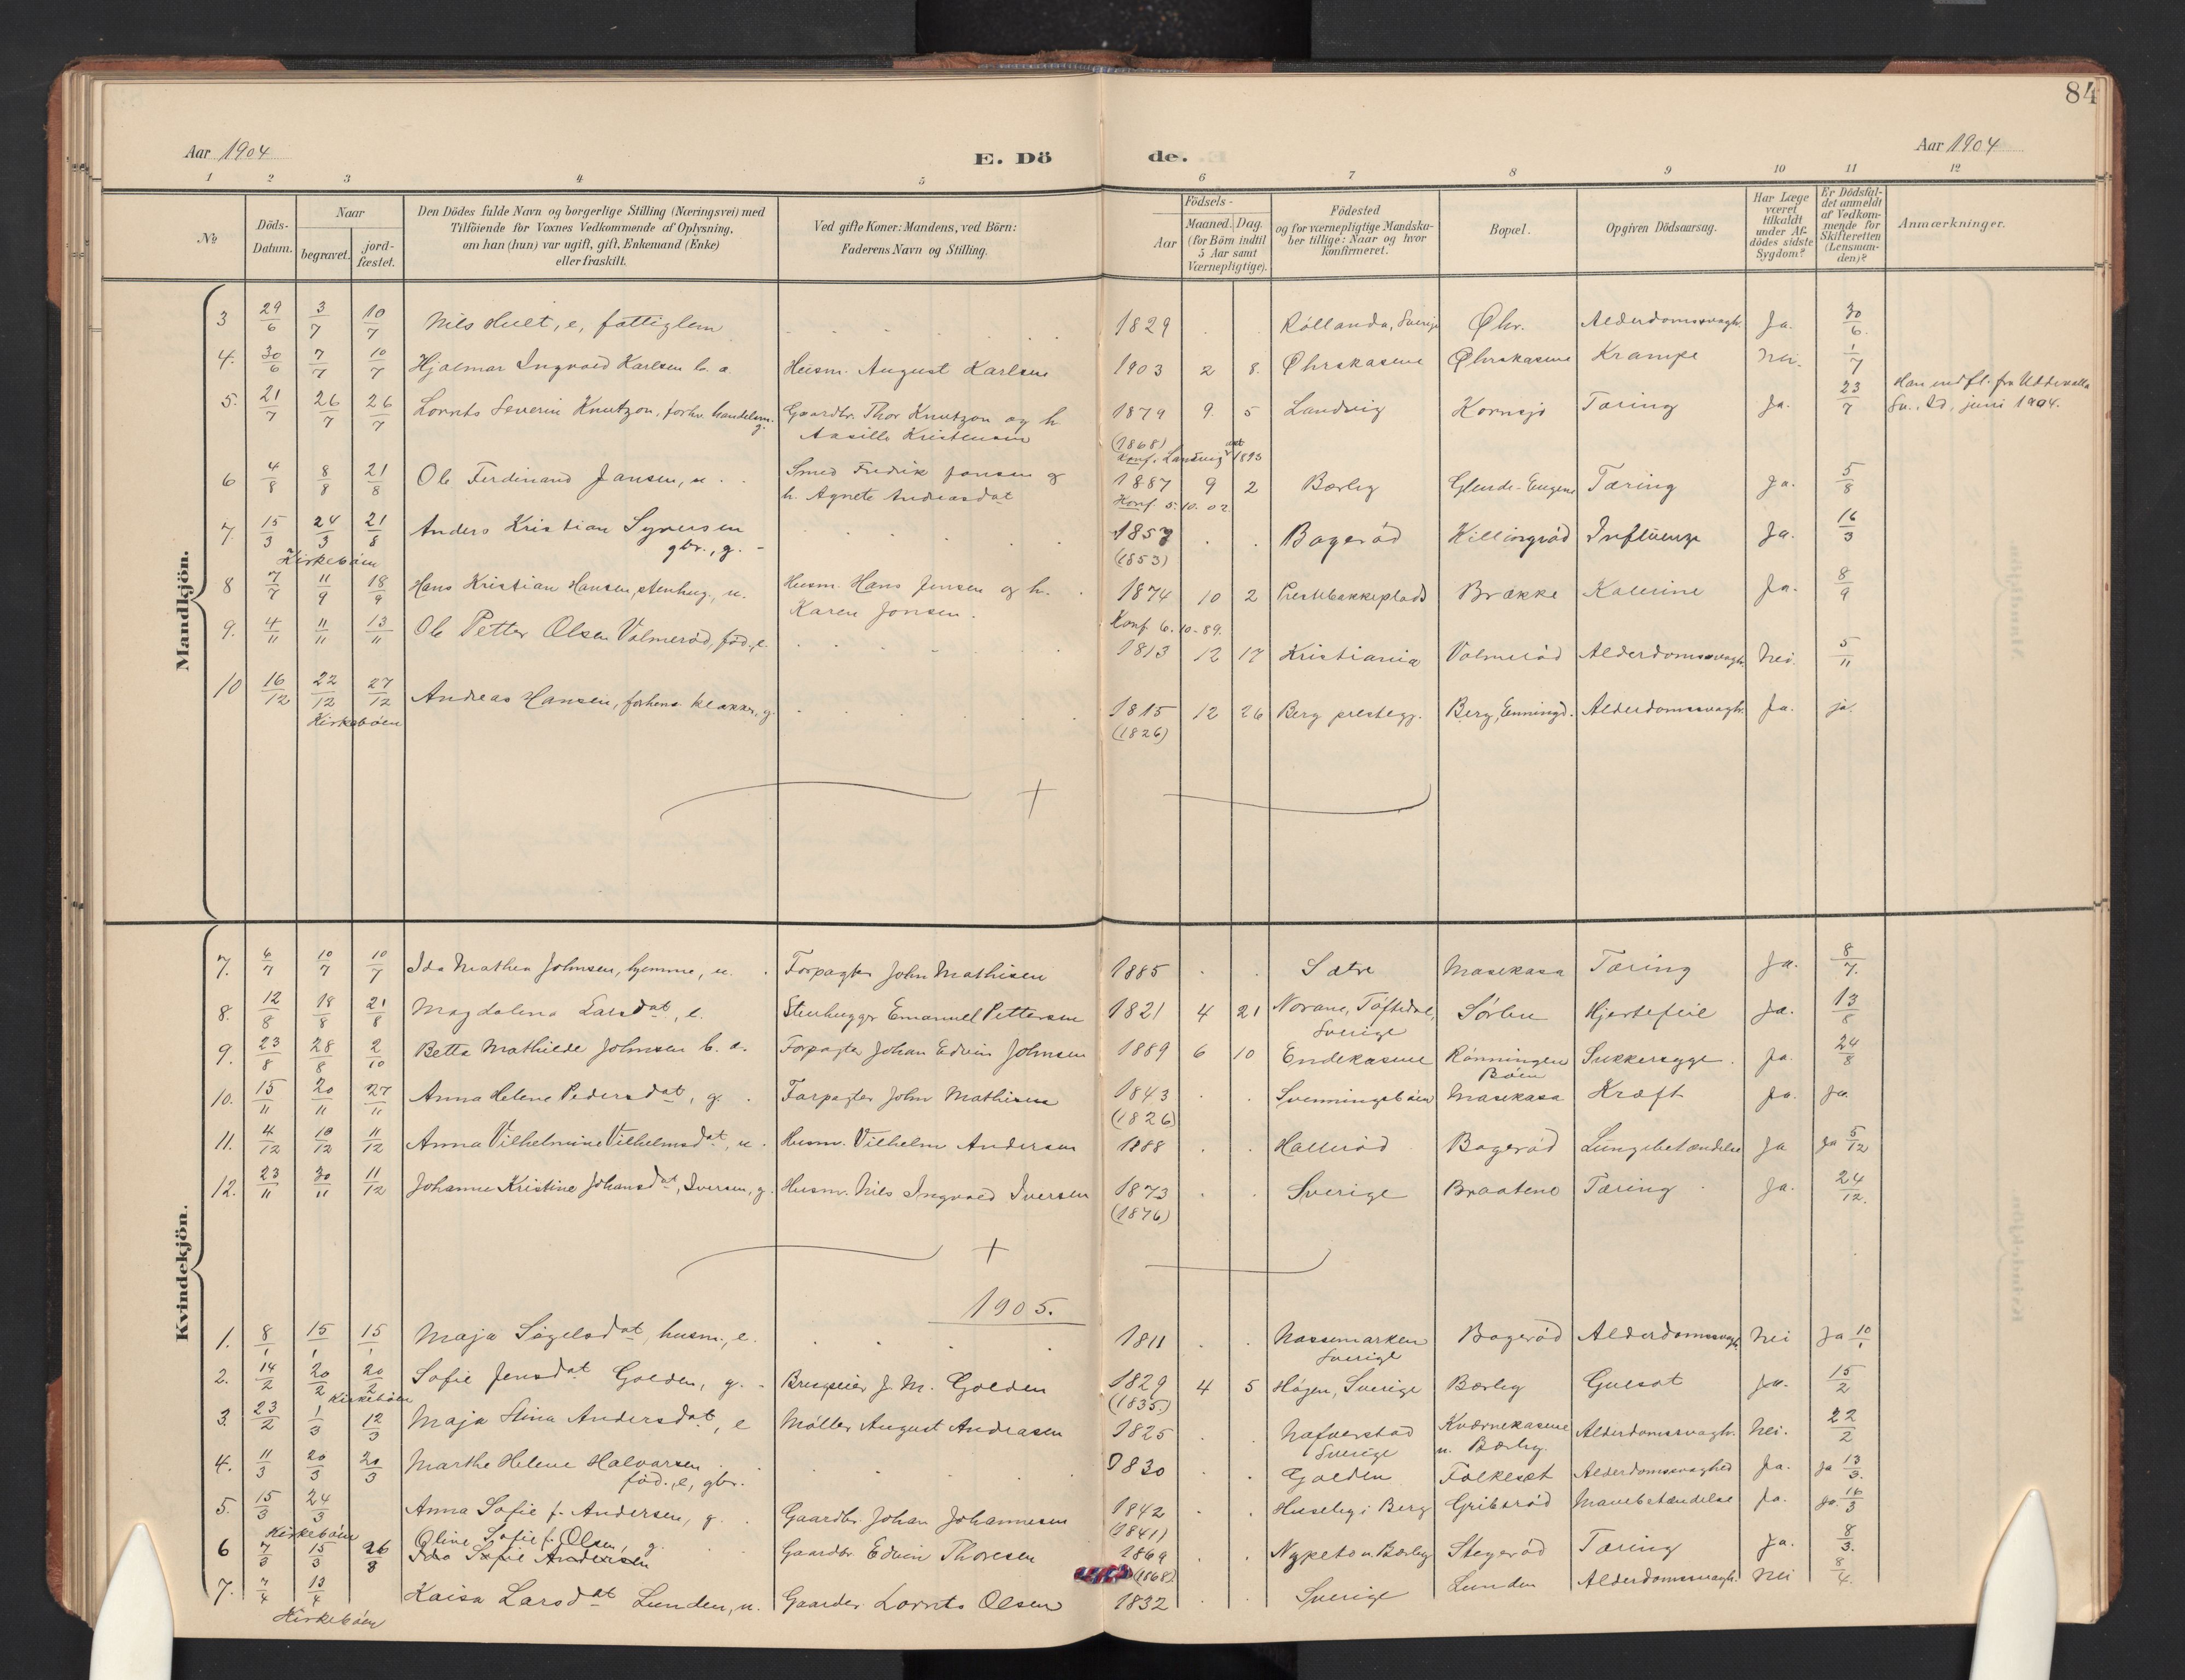 84
Aar 1904
E. Dö
de.
Aar 1904
1 2 3 4 5 6 7 8 9 10 11 12
№
Döds-Datum.
Naar
begravet.
jord-fæstet.
Den Dödes fulde Navn og borgerlige Stilling (Næringsvei) med
Tilföiende for Voxnes Vedkommende af Oplysning,
om han (hun) var ugift, gift, Enkemand (Enke)
eller fraskilt.
Ved gifte Koner: Mandens, ved Börn:
Faderens Navn og Stilling.
Födsels-
Aar
Maaned. Dag.
(for Börn indtil
5 Aar samt
Værnepligtige).
Födested
og for værnepligtige Mandska-
ber tillige: Naar og hvor
konfirmeret.
Bopæl.
Opgiven Dödsaarsag.
Har Læge
været
tilkaldt
under Af-
dödes sidste
Sygdom?
Er Dödsfal-
det anmeldt
af Vedkom-
mende for
Skifteretten
(Lensman-
den)?
Anmærkninger.
Mandkjön.
3 29/6 3/7 10/7 Nils Hult, e, fattiglem 1829 Röllanda, Sverige Øhr. Alderdomssvagh. Ja. 30/6
4. 30/6 7/7 10/7 Hjalmar Ingvald Karlsen b. a. Husm. August Karlsen 1903 2 8. Øhrskasene Øhrskasene Krampe Nei. 1/7
5. 21/7 26/7 26/7 Lornts Severin Knutzon, forhv. handelsm. g. Gaardbr. Thor Knutzon og h. 1879 9. 5 Landvig Kornsjø Tæring Ja. 23/7 Han indfl. fra Uddevalla
Aasille Kristensen (1868) Sv., juni 1904.
Konf. Landvig 1893
6 4/8 8/8 21/8 Ole Ferdinand Jansen, u. Smed Fredrik Jansen og 1887 9 2 Bærby Glende-Eugene Tæring Ja. 5/8
h. Agnete Andreasdat Konf 5. 10. 02.
7. 15/3 24/3 21/8 Anders Kristian Syversen 1857 Bagerød Killingrød Influenza Ja. 16/3
gbr., g. (1853)
Kirkebøen
8 7/7 11/9 18/9 Hans Kristian Hansen, stenhug., u. Husm. Hans Jensen og h. 1874 10 2 Prestebakkeplads Brække Kolerine Ja. 8/9
Karen Jonsen. Konf 6.10-89.
9. 4/11 11/11 13/11 Ole Petter Olsen Volmerød, fød., e. 1813 12 17 Kristiania Volmerød Alderdomssvagh. Nei. 5/11
10 16/12 22/12 27/12 Andreas Hansen, forhenv. klokker, g. 1815 12 26 Berg prestegj. Berg, Enningd. Alderdomssvagh. Ja. ja.
Kirkebøen (1826)
Kvindekjön.
7. 6/7 10/7 10/7 Ida Mathea Johnsen, hjemme, u. Forpagter John Mathisen 1885 Sætre Masekasa Tæring Ja. 8/7.
8. 12/8 18/8 21/8 Magdalena Larsdat, e. Stenhugger Emanuel Pettersen 1821 4 21 Norane, Töftedal, Sørbu Hjertefeil Ja. 13/8
Sverige
9. 23/8 28/8 2/10 Betta Mathilde Johnsen b. a. Forpagter Johan Edvin Johnsen 1889 6 10 Endekasene Rönningen Sukkersyge. Ja. 24/8
Bøen
10. 15/11 20/11 27/11 Anna Helene Pedersdat, g. Forpagter John Mathisen 1843 Svenningsbøen Masekasa Kræft Ja. Ja.
(1826)
11. 4/12 10/12 11/12 Anna Vilhelmine Vilhelmsdat, u. Husm. Vilhelm Andersen 1888 Hallerød Bagerød Lungebetændelse Ja Ja 5/12
12. 23/11 30/11 11/12 Johanne Kristine Johansdat, Iversen, g. Husm. Nils Ingvald Iversen 1873 Sverige Braatene Tæring Ja. 24/12.
(1876)
1905.
1. 8/1 15/1 15/1 Maja Sögelsdat, husm., e. 1811 Nassemarken Bagerød Alderdomssvagh. Nei Ja 10/1
Sverige
2. 14/2 20/2 20/2 Sofie Jensdat Golden, g. Brugseier J. M. Golden 1829 4 5 Högen, Sverige Bærby Gulsot Ja. 15/2
Kirkebøen (1835)
3. 23/2 1/3 12/3 Maja Stina Andersdat, e Möller August Andreasen 1825 Nafverstad Kværnekasene Alderdomssvagh. Nei. 22/2
Sverige u. Bærby.
4. 11/3 20/3 20/3 Marthe Helene Halvorsen 1830 Golden Folkesæt Alderdomssvaghed Ja. Ja 13/3.
fød., e, gbr.
5. 15/3 24/3 Anna Sofie f. Andersen, g. Gaardbr. Johan Johannesen 1842 Huseby i Berg Gribsrød Mavebetændelse Ja. Ja. 16/3
Kirkebøen (1841)
6 7/3 15/3 26/3 Oline Sofie f. Olsen, g. Gaardbr. Edvin Thoresen 1869 Nypeto u. Bærby Stegerød Tæring Ja. 8/3.
Ida Sofie Andersen (1868)
7. 7/4 13/4 Kaisa Larsdat Lunden, u. Gaardbr. Lornts Olsen 1832 Sverige Lunden Alderdomssvagh. Nei 8/4.
Kirkebøen